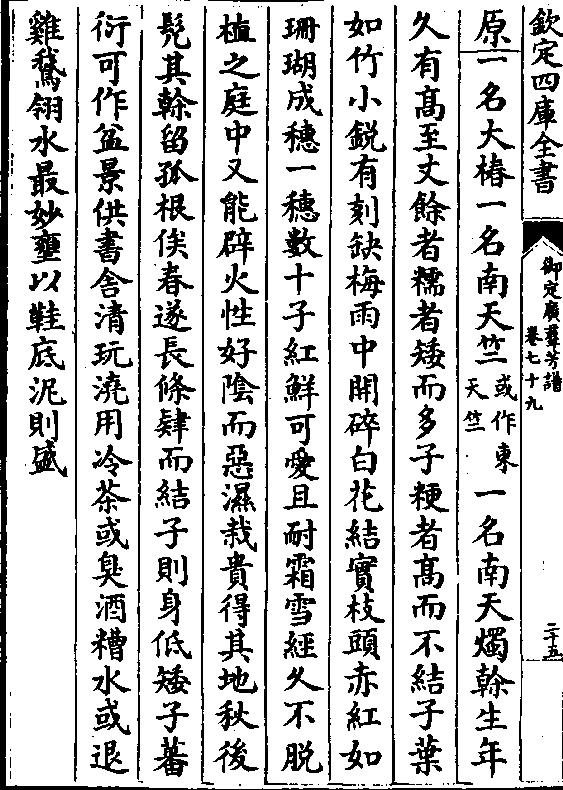 欽定四庫全書
御定廣羣芳譜
卷七十九
二十五
原一名大椿一名南天竺或作東天竺一名南天燭榦生年
久有髙至丈餘者糯者矮而多子粳者髙而不結子葉
如竹小鋭有刻缺梅雨中開碎白花結實枝頭赤紅如
珊瑚成穗一穗數十子紅鮮可愛且耐霜雪經久不脱
植之庭中又能辟火性好陰而惡濕栽貴得其地秋後
髠其榦留孤根俟春遂長條肄而結子則身低矮子蕃
衍可作盆景供書舎清玩澆用冷茶或臭酒糟水或退
雞鵞翎水最妙壅以鞋底泥則盛